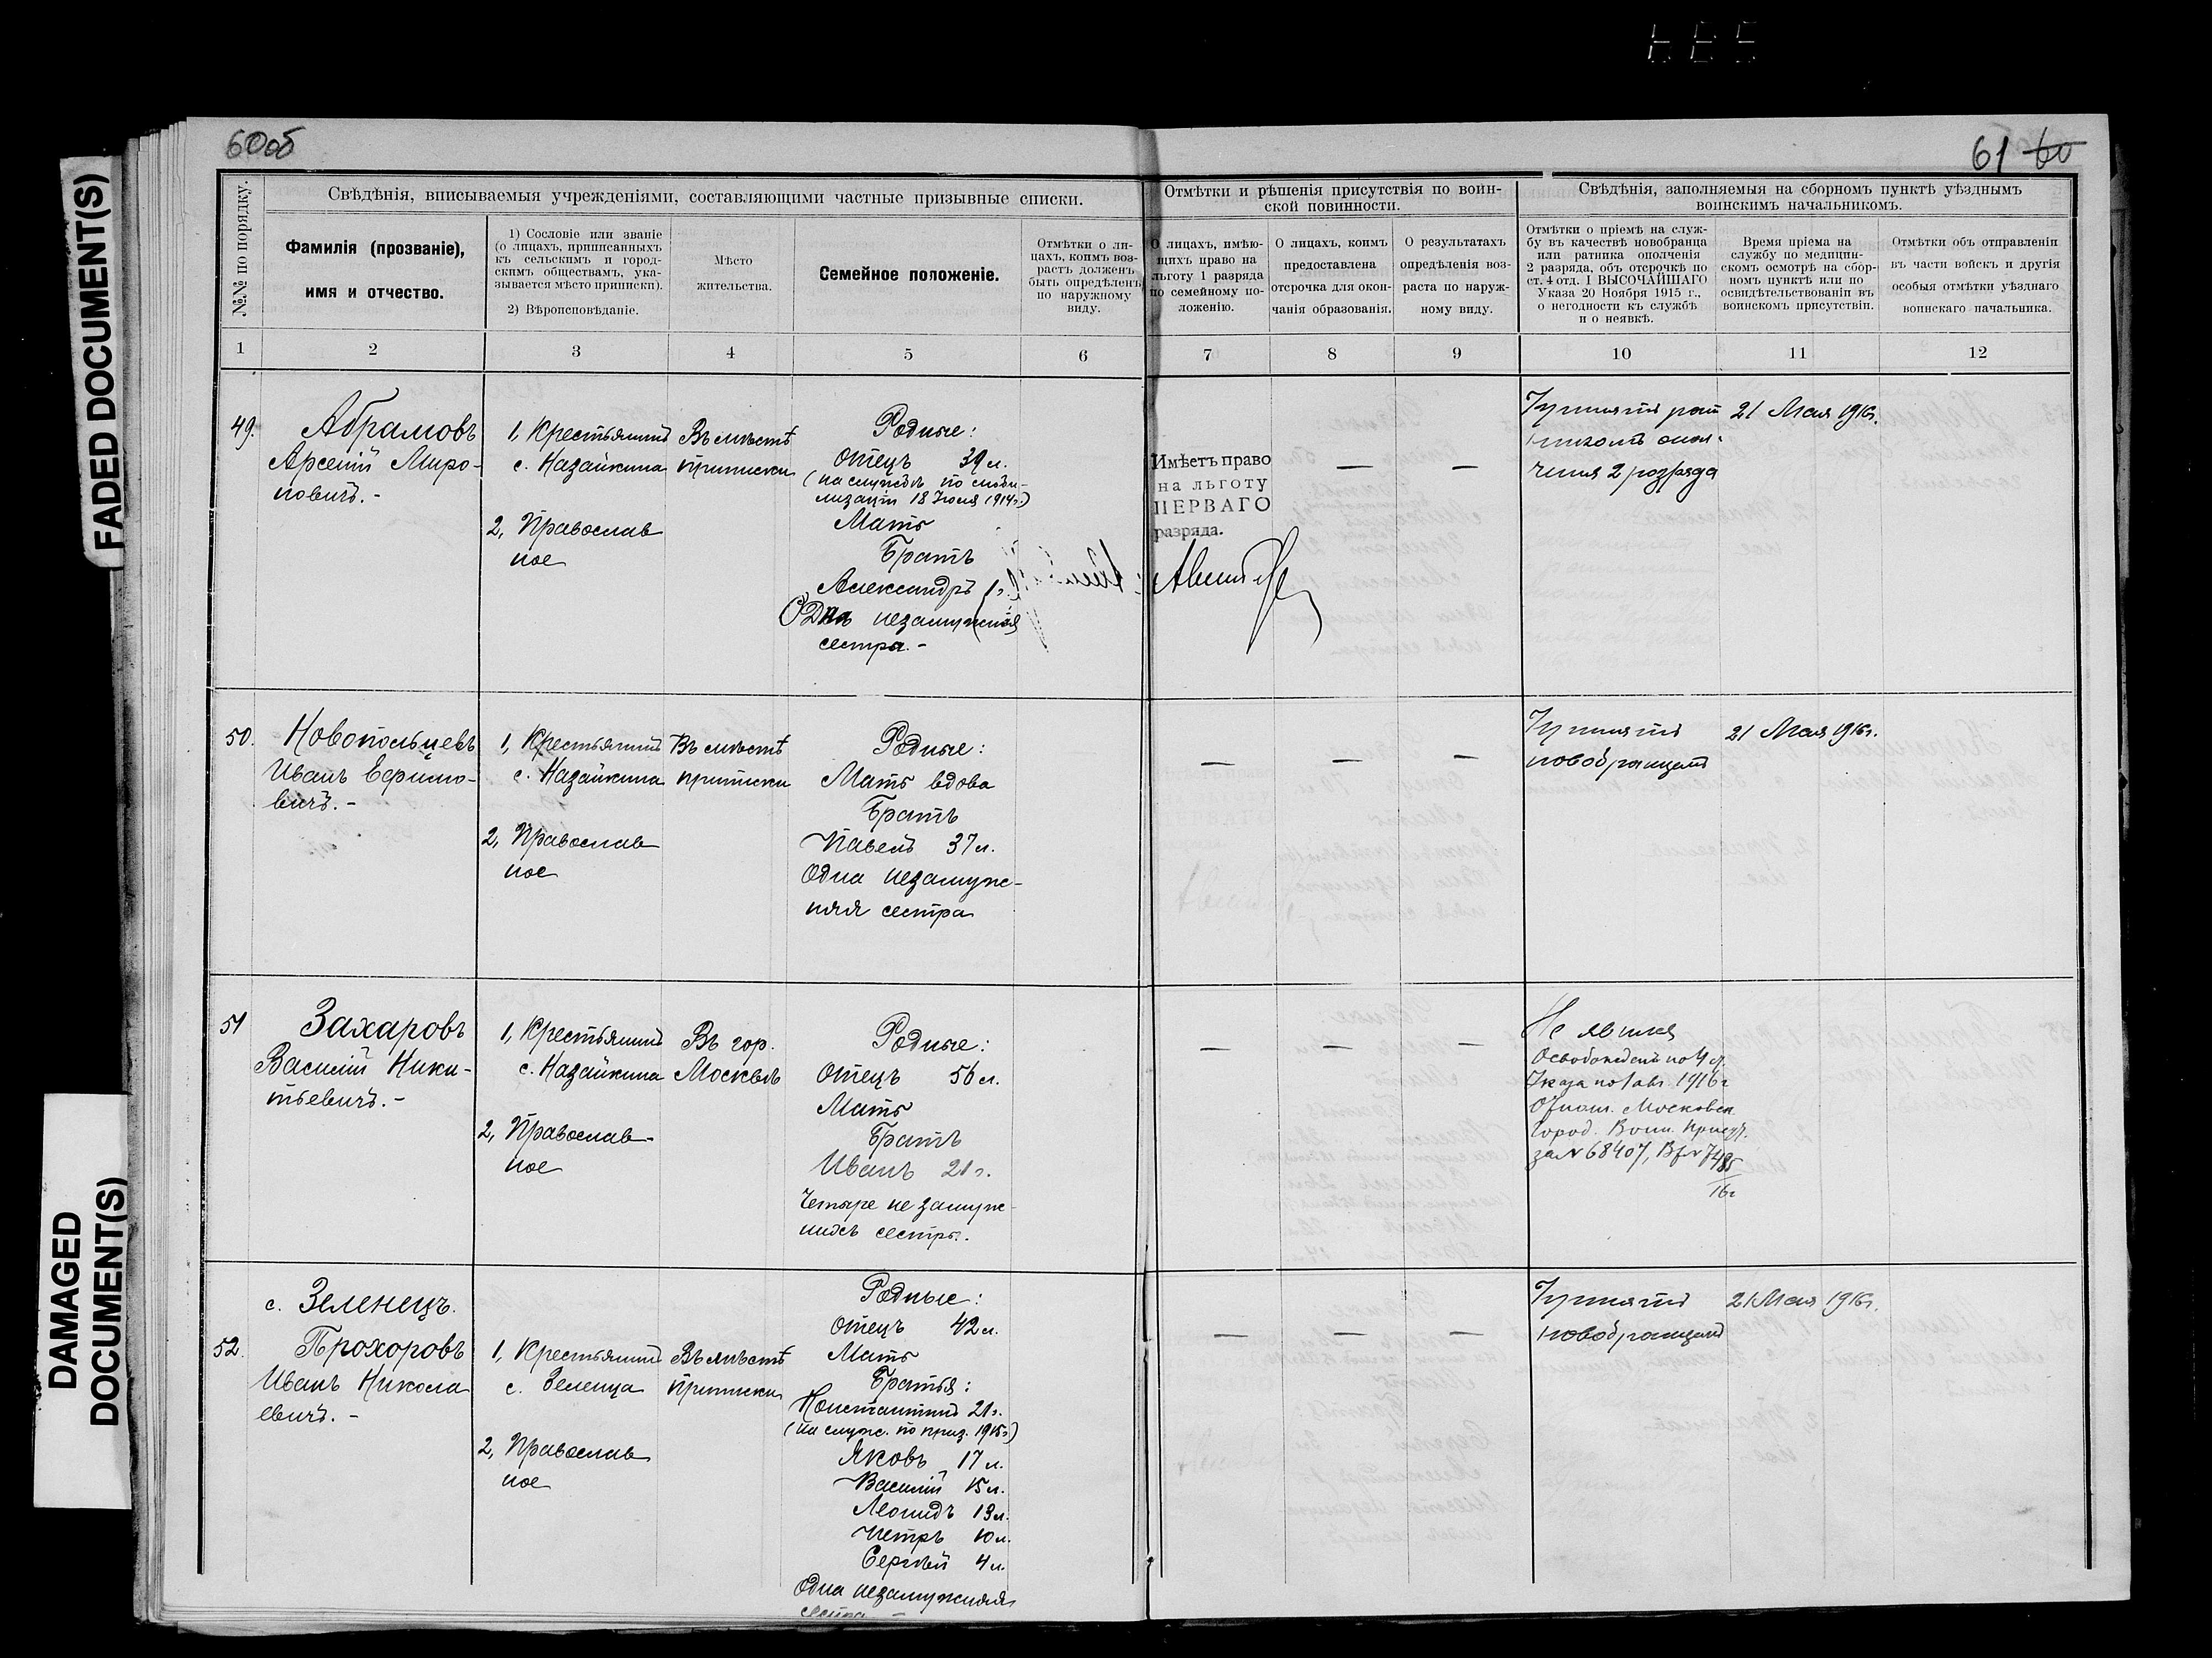 FADED DOCUMENT(S)
DAMAGED
DOCUMENT(S)
60об
61 60
№№ по порядку.
Свѣдѣнія, вписываемыя учрежденіями, составляющими частные призывные списки.
Отмѣтки и рѣшенія присутствія по воин-
ской повинности.
Свѣдѣнія, заполняемыя на сборномъ пунктѣ уѣзднымъ
воинскимъ начальникомъ.
Фамилія (прозваніе),
имя и отчество.
1) Сословіе или званіе
(о лицахъ, приписанныхъ
къ сельскимъ и город-
скимъ обществамъ, ука-
зывается мѣсто приписки).
2) Вѣроисповѣданіе.
Мѣсто
жительства.
Семейное положеніе.
Отмѣтки о ли-
цахъ, коимъ воз-
растъ долженъ
быть опредѣленъ
по наружному
виду.
О лицахъ, имѣю-
щихъ право на
льготу 1 разряда
по семейному по-
ложенію.
О лицахъ, коимъ
предоставлена
отсрочка для окон-
чанія образованія.
О результатахъ
опредѣленія воз-
раста по наруж-
ному виду.
Отмѣтки о пріемѣ на служ-
бу въ качествѣ новобранца
или ратника ополченія
2 разряда, объ отсрочкѣ по
ст. 4 отд. I ВЫСОЧАЙШАГО
Указа 20 Ноября 1915 г.,
о негодности къ службѣ
и о неявкѣ.
Время пріема на
службу по медицин-
скомъ осмотрѣ на сбор-
номъ пунктѣ или по
освидѣтельствованіи въ
воинскомъ присутствіи.
Отмѣтки объ отправленіи
въ части войскъ и другія
особыя отмѣтки уѣзднаго
воинскаго начальника.
1 2 3 4 5 6 7 8 9 10 11 12
49.
Абрамовъ
Арсеній Миро-
новичъ.-
1, Крестьянинъ
с. Назайкина
2, Православ
ное
Въ мѣстѣ
приписки
Родные:
Отецъ 39 л.
(на службѣ по моби-
лизаціи 18 Іюля 1914г.)
Мать
Братъ
Александръ 1г.
Одна незамужняя
сестра.-
Имѣетъ право
на льготу
ПЕРВАГО
разряда.
— —
Принятъ рат
никомъ опол-
ченія 2 разряда
21 Мая 1916г.
50.
Новопольцевъ
Иванъ Ефимо-
вичъ.-
1, Крестьянинъ
с. Назайкина
2, Православ
ное
Въ мѣстѣ
приписки
Родные:
Мать вдова
Братъ
Павелъ 37 л.
Одна незамуж-
няя сестра
— — —
Принятъ
новобранцемъ
21 Мая 1916г.
51
Захаровъ
Василій Ники-
тьевичъ.-
1, Крестьянинъ
с. Назайкина
2, Православ-
ное
Въ гор.
Москвѣ
Родные:
Отецъ 56 л.
Мать
Братъ
Иванъ 21г.
Четыре не замуж-
нихъ сестры.
— — —
Не явился
Освобожденъ по 4 ст.
Указа
1916г
Московск.
Город. Воин. Присут.
за № 68407, 7485
16г
с. Зеленецъ.
52.
Прохоровъ
Иванъ Никола
евичъ.-
1, Крестьянинъ
с. Зеленца
2, Православ
ное
Въ мѣстѣ
приписки
Родные:
Отецъ 42 л.
Мать
Братья:
Константинъ 21г.
(на служ. по приз. 1915г.)
Яковъ 17 л.
Василій 15 л.
Леонидъ 13 л.
Петръ 10 л.
Сергѣй 4 л.
Одна незамужняя
сестра -
— — —
Принятъ
новобранцемъ
21 Мая 1916г.